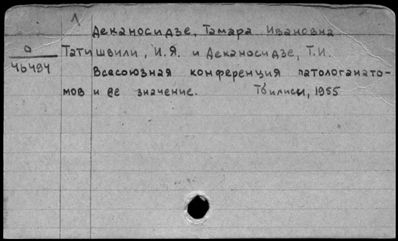 1
Деканосидзе, Тамара Ивановна
а
46494
Татишвили, И.Я. и Деканосидзе, Т.И.
Всесоюзная конференция патологанато-
мов и ее значение. Тбилиси, 1955